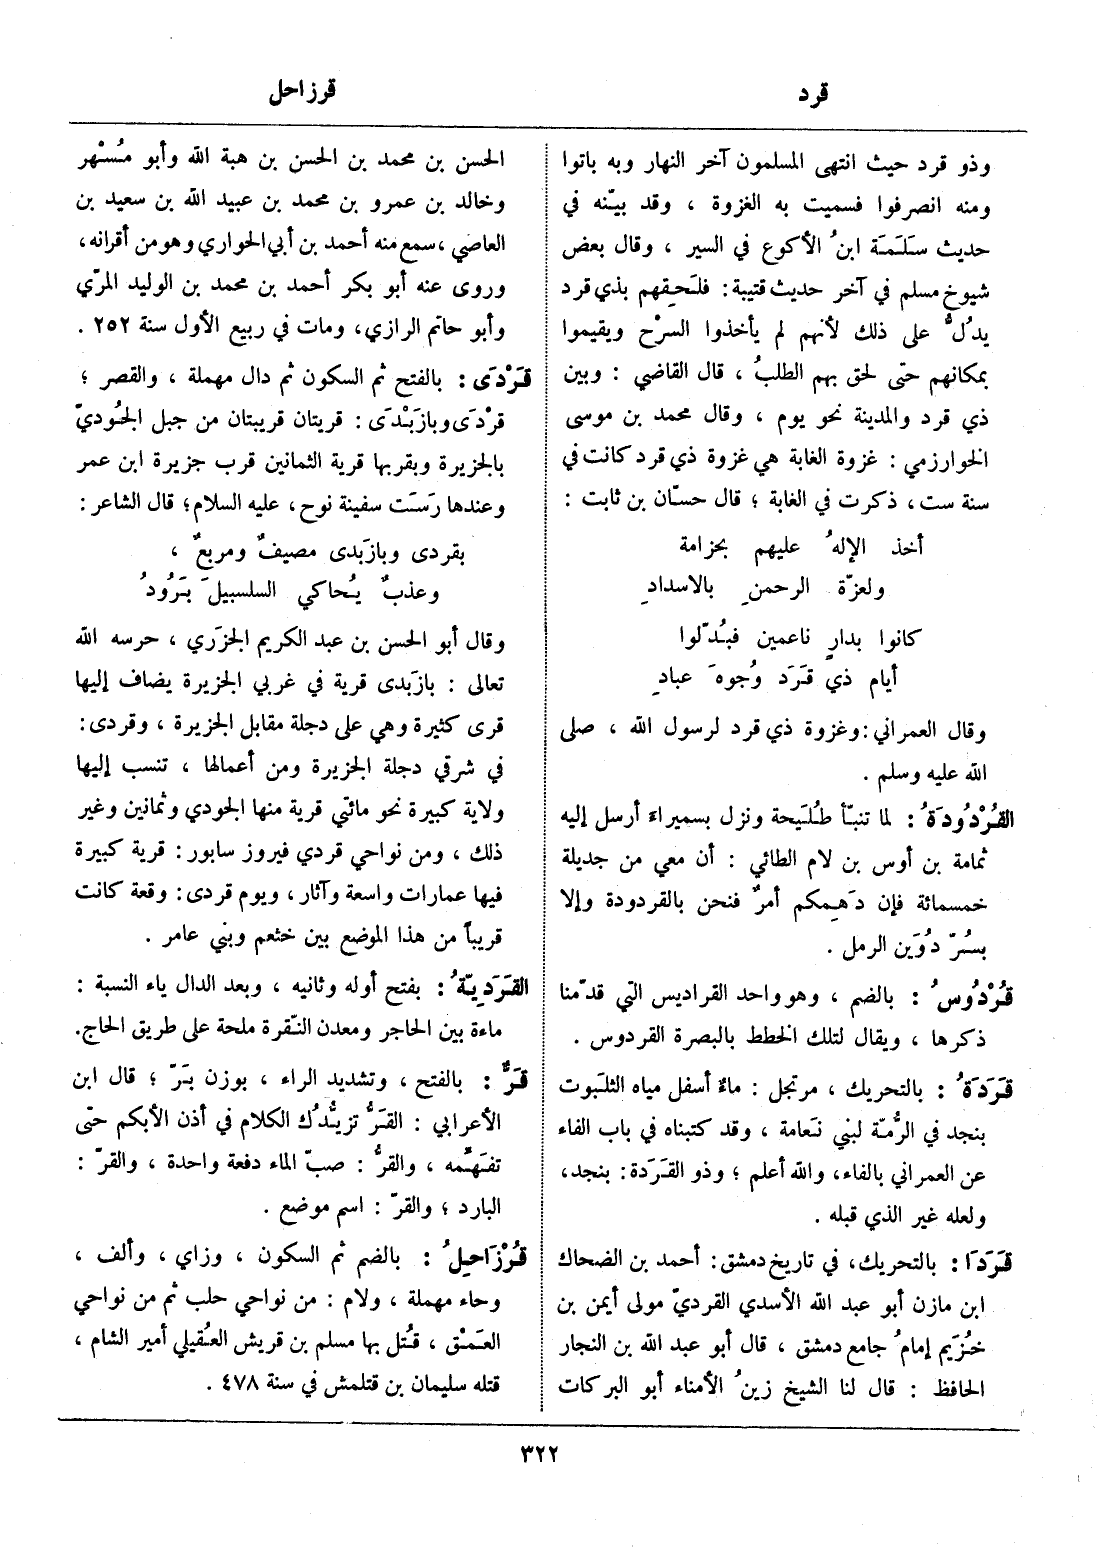 قرد
قرزاحل
وذو قرد حيث انتهى المسلمون آخر النهار وبه باتوا
ومنه انصرفوا فسميت به الغزوة ، وقد بيّنه في
حديث سَلَمَة ابنُ الأكوع في السير ، وقال بعض
شيوخ مسلم في آخر حديث قتيبة : فلَحِقهم بذي قرد
يدُلُّ على ذلك لأنهم لم يأخذوا السرْح ويقيموا
بمكانهم حتى لحق بهم الطلبُ ، قال القاضي : وبين
ذي قرد والمدينة نحو يوم ، وقال محمد بن موسى
الخوارزمي : غزوة الغابة هي غزوة ذي قرد كانت في
سنة ست ، ذكرت في الغابة ؛ قال حسّان بن ثابت :
أخذ الإلهُ عليهم بحزامة
ولعزّة الرحمنِ بالاسدادِ
كانوا بدارٍ ناعمين فبُدّلوا
أيام ذي قَرَد وُجوهَ عبادِ
وقال العمراني : وغزوة ذي قرد لرسول الله ، صلى
الله عليه وسلم .
القُرْدُودَةُ : لما تنبّأ طُلَيحة ونزل بسميراء أرسل إليه
ثمامة بن أوس بن لام الطائي : أن معي من جديلة
خمسمائة فإن دَهِمكم أمرٌ فنحن بالقردودة وإلا
بسُرّ دُوَين الرمل .
قُرْدُوسُ : بالضم ، وهو واحد القراديس التي قدّمنا
ذكرها ، ويقال لتلك الخطط بالبصرة القردوس .
قَرَدَةُ : بالتحريك ، مرتجل : ماء أسفل مياه الثلَبوت
بنجد في الرُّمّة لبني نَعامة ، وقد كتبناه في باب الفاء
عن العمراني بالفاء ، والله أعلم ؛ وذو القَرَدة : بنجد ،
ولعله غير الذي قبله .
قَرَدَا : بالتحريك ، في تاريخ دمشق : أحمد بن الضحاك
ابن مازن أبو عبد الله الأسدي القرديّ مولى أيمن بن
خُزَيم إمامُ جامع دمشق ، قال أبو عبد الله بن النجار
الحافظ : قال لنا الشيخ زينُ الأمناء أبو البركات
الحسن بن محمد بن الحسن بن هبة الله وأبو مُسْهر
وخالد بن عمرو بن محمد بن عبيد الله بن سعيد بن
العاصي ، سمع منه أحمد بن أبي الحواري وهو من أقرانه ،
وروى عنه أبو بكر أحمد بن محمد بن الوليد المرّي
وأبو حاتم الرازي ، ومات في ربيع الأول سنة ٢٥٢ .
قَرْدَى : بالفتح ثم السكون ثم دال مهملة ، والقصر ؛
قرْدَى وبازَبْدَى : قريتان قريبتان من جبل الجُوديّ
بالجزيرة وبقربها قرية الثمانين قرب جزيرة ابن عمر
وعندها رَسَت سفينة نوح ، عليه السلام ؛ قال الشاعر :
بقردى وبازَبدى مصيفٌ ومربعٌ ،
وعذبٌ يُحاكي السلسبيلَ بَرُودُ
وقال أبو الحسن بن عبد الكريم الجزَري ، حرسه الله
تعالى : بازَبدى قرية في غربي الجزيرة يضاف إليها
قرى كثيرة وهي على دجلة مقابل الجزيرة ، وقردى :
في شرقي دجلة الجزيرة ومن أعمالها ، تنسب إليها
ولاية كبيرة نحو مائتي قرية منها الجودي وثمانين وغير
ذلك ، ومن نواحي قردي فيروز سابور : قرية كبيرة
فيها عمارات واسعة وآثار ، ويوم قردى : وقعة كانت
قريباً من هذا الموضع بين خثعم وبني عامر .
القَرَدِيّةُ : بفتح أوله وثانيه ، وبعد الدال ياء النسبة :
ماءة بين الحاجر ومعدن النّقرة ملحة على طريق الحاج .
قَرٌّ : بالفتح ، وتشديد الراء ، بوزن بَرّ ؛ قال ابن
الأعرابي : القَرُّ تزيدُّك الكلام في أذن الأبكم حتى
تفَهّمه ، والقرُّ : صبّ الماء دفعة واحدة ، والقرّ :
البارد ؛ والقرّ : اسم موضع .
قُرْزَاحِلُ : بالضم ثم السكون ، وزاي ، وألف ،
وحاء مهملة ، ولام : من نواحي حلب ثم من نواحي
العَمْق ، قُتل بها مسلم بن قريش العُقيلي أمير الشام ،
قتله سليمان بن قتلمش في سنة ٤٧٨ .
٣٢٢